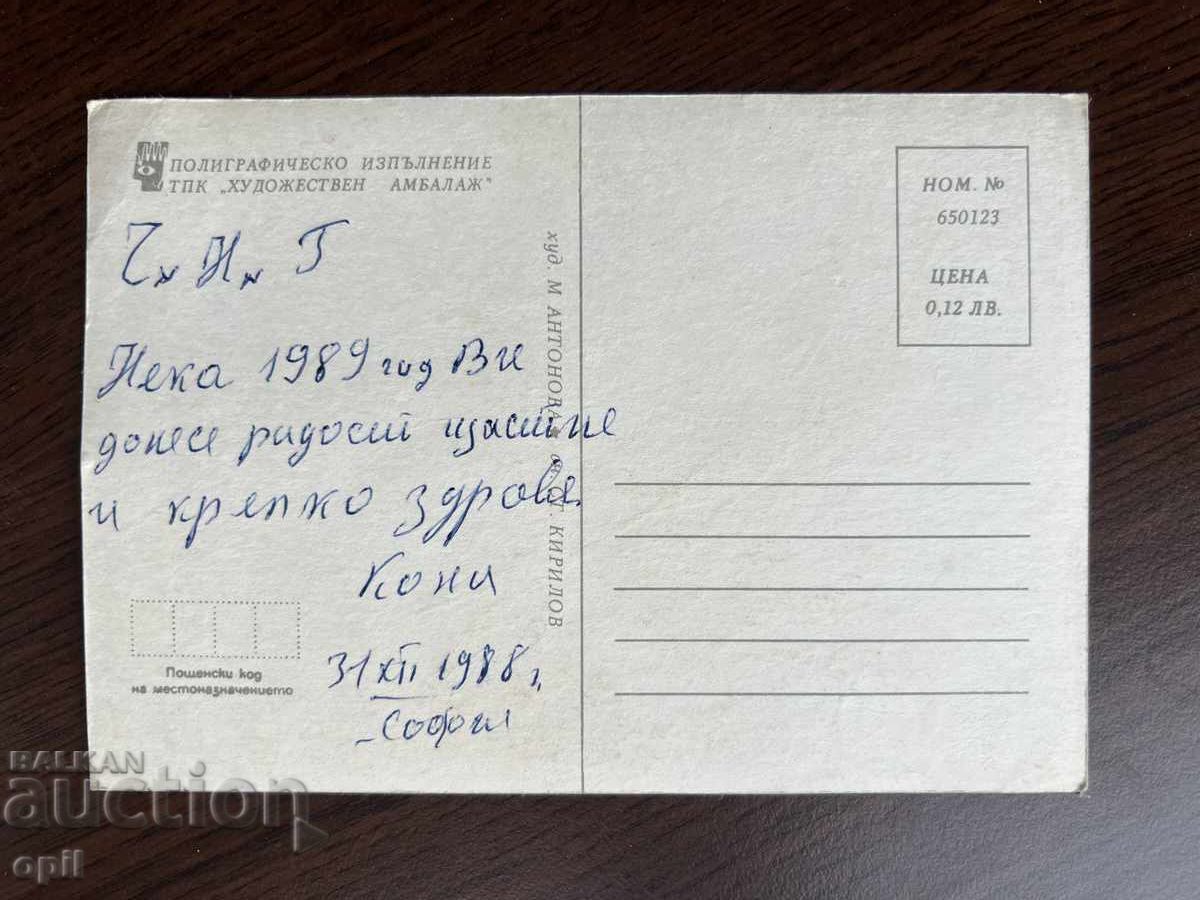 ПОЛИГРАФИЧЕСКО ИЗПЪЛНЕНИЕ
ТПК „ХУДОЖЕСТВЕН АМБАЛАЖ"
Ч. Н. Г
Нека 1989 год Ви
донесе радост щастие
и крепко здраве.
Кони
31 XII 1988 г.
София
Пощенски код
на местоназначението
худ. М АНТОНОВА
Г. КИРИЛОВ
НОМ. №
650123
ЦЕНА
0,12 ЛВ.
BALKAN
auction
opil